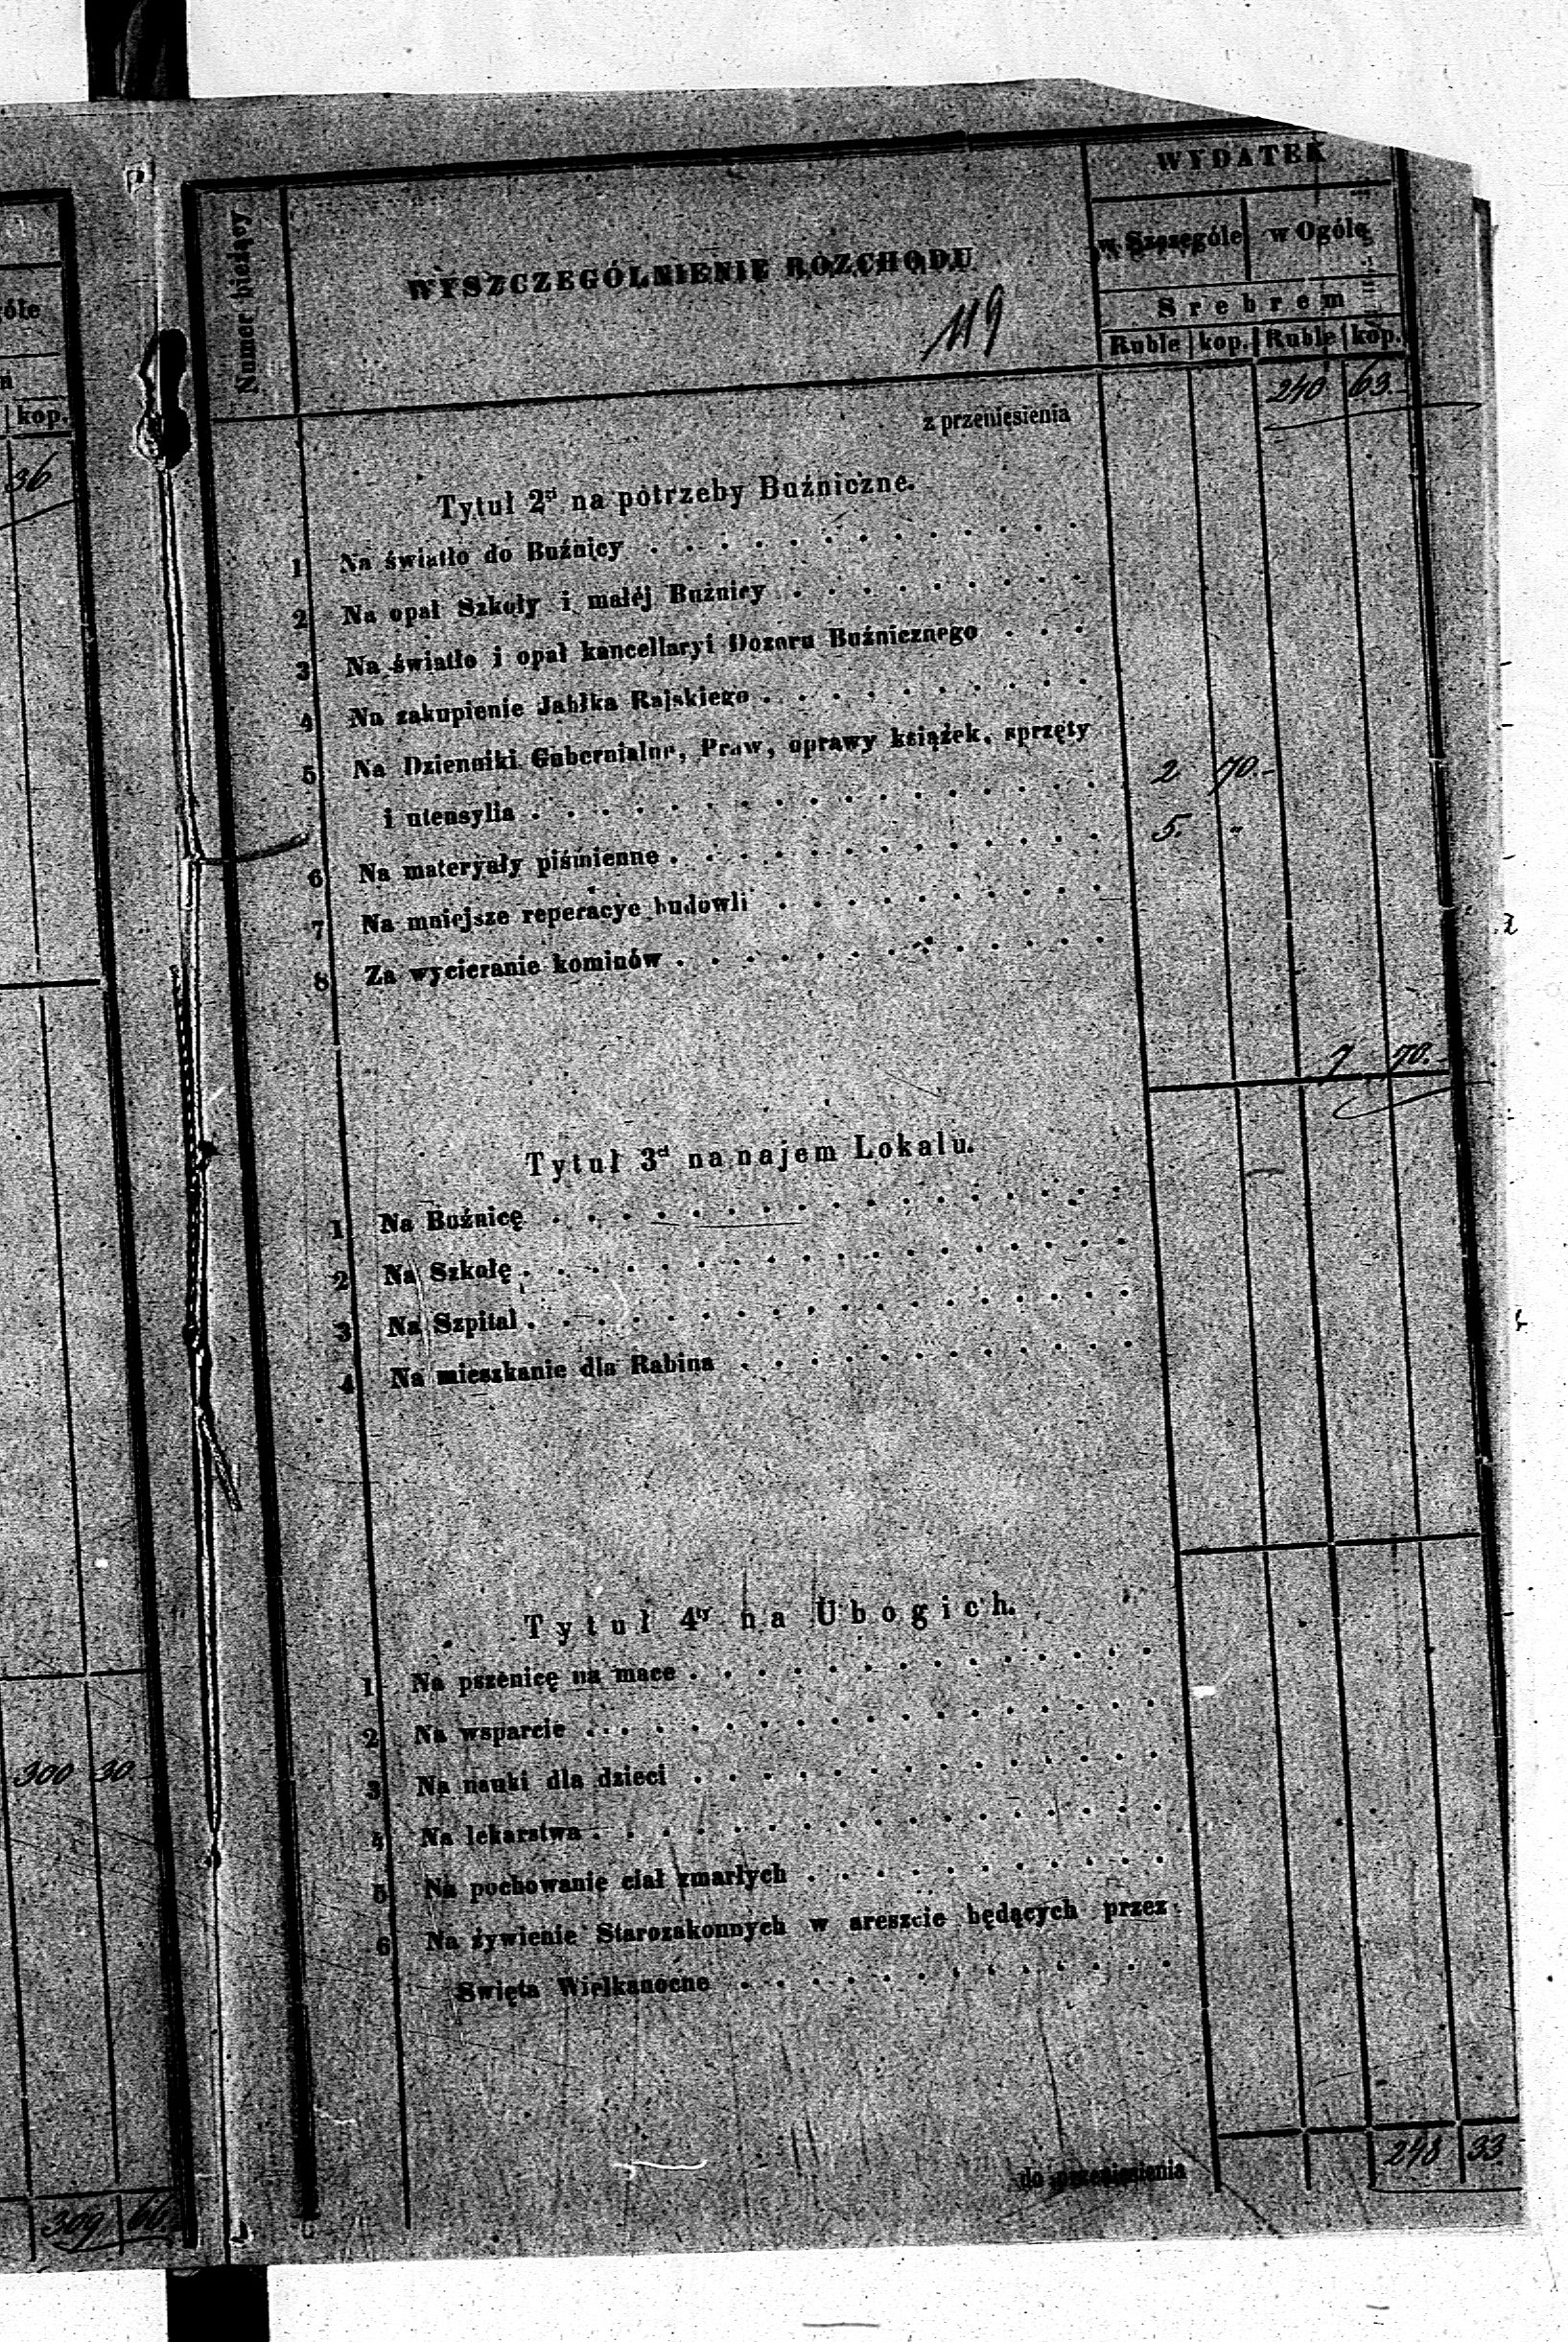 óle
kop.
36
300 30.
309 66
Numer bieżący
WYSZCZEGÓLNIENIE ROZCHODU
119
WYDATEK
w Szczególe w Ogóle
Srebrem
Ruble kop. Ruble kop.
z przeniesienia 240 63.
Tytuł 2gi na potrzeby Buźniczne.
1 Na światło do Buźnicy
2 Na opał Szkoły i małéj Buźnicy
3 Na światło i opał kancellaryi Dozoru Buźnicznego
4 Na zakupienie Jabłka Rajskiego
5 Na Dzienniki Gubernialne, Praw, oprawy książek, sprzęty
i utensylia 2 70.
6 Na materyały piśmienne 5. "
7 Na mniejsze reperacye budowli
8 Za wycieranie kominów
7 70.
Tytuł 3ci na najem Lokalu.
1 Na Buźnicę
2 Na Szkołę
3 Na Szpital
4 Na mieszkanie dla Rabina
Tytuł 4ty na Ubogich.
1 Na pszenicę na mace
2 Na wsparcie
3 Na nauki dla dzieci
4 Na lekarstwa
5 Na pochowanie ciał zmarłych
6 Na żywienie Starozakonnych w areszcie będących przez
Święta Wielkanocne
do przeniesienia 248 33